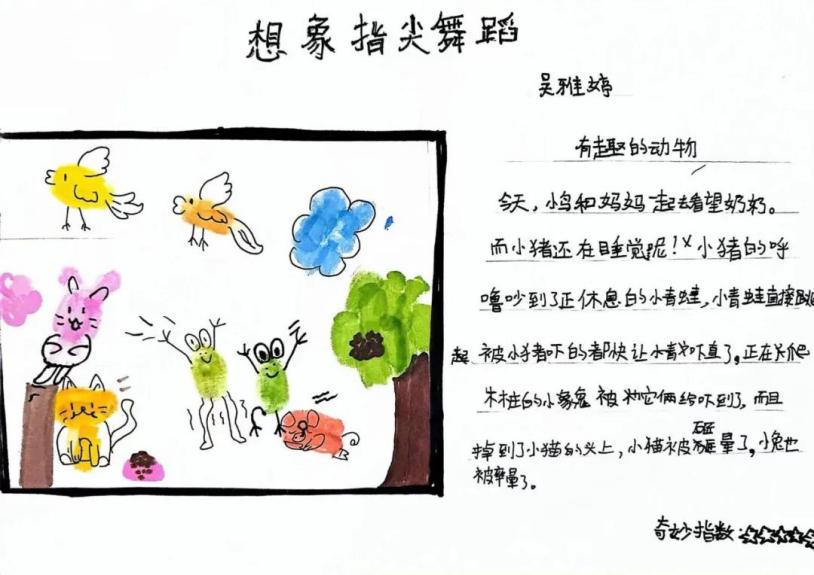 想象指尖舞蹈
吴雅婷
有趣的动物
今天,小鸟和妈妈一起去看望奶奶。
而小猪还在睡觉呢!小猪的呼
噜吵到了正休息的小青蛙,小青蛙直接跳
起,被小猪吓的都快让小青吓直了。正在爬
木桩的小兔被它俩给吓到了,而且
掉到了小猫的头上,小猫被砸晕了,小兔也
被摔晕了。
奇妙指数:☆☆☆☆☆